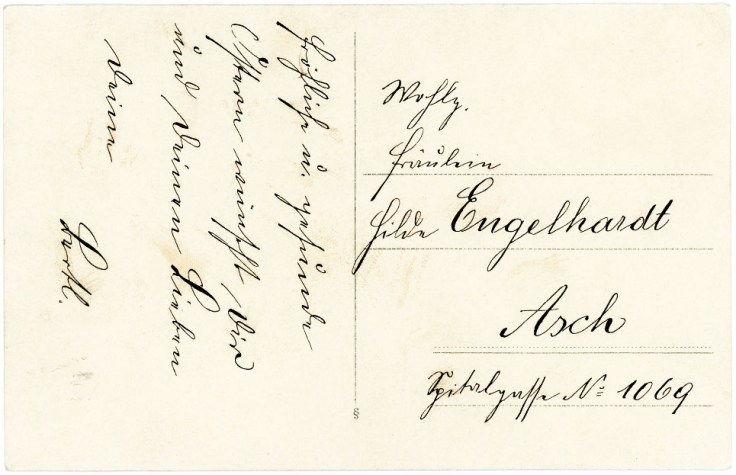 Fröhliche u. gesunde
Ostern wünscht Dir
und Deinen Lieben
Deine
Bertl.
Wohlg.
Fräulein
Hilde Engelhardt
Asch
Spitalgasse No 1069